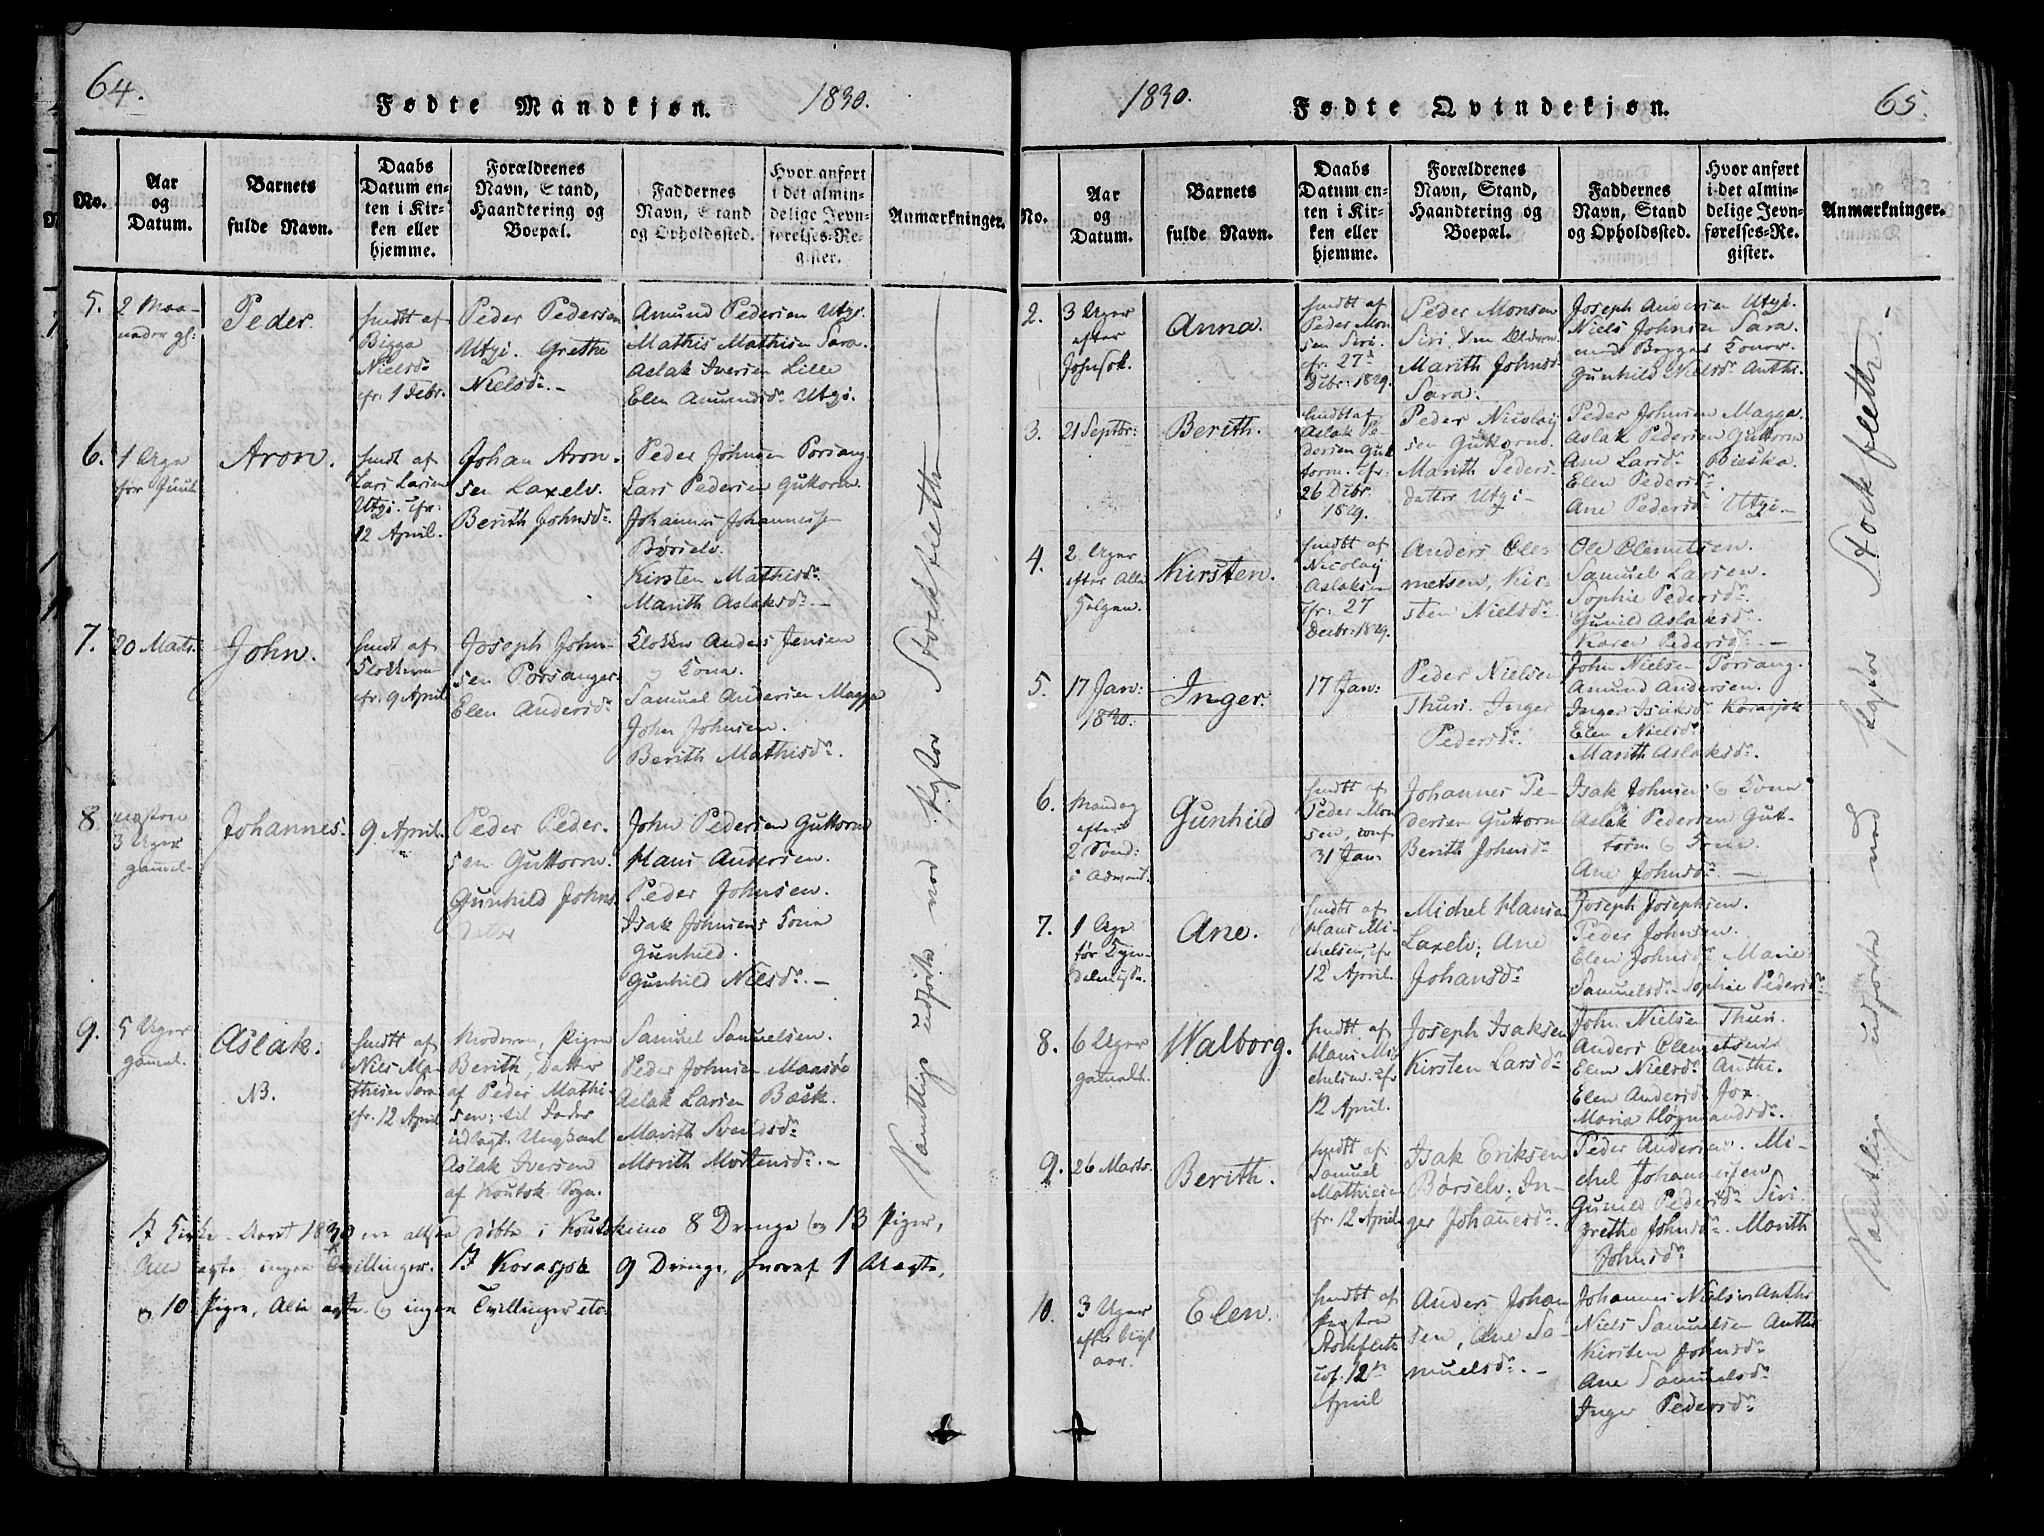 64.
Fødte Mandkjøn.
1830.
No.
Aar
og
Datum.
Barnets
fulde Navn.
Daabs
Datum en-
ten i Kir-
ken eller
hjemme.
Forældrenes
Navn, Stand,
Haandtering og
Boepæl.
Faddernes
Navn, Stand
og Opholdssted.
Hvor anført
i det almin-
delige Jevn-
førelses-Re-
gister.
Anmærkninger.
5.
2 Maa-
neder gl:
Peder.
hmdt af
Bigga
Nielsd.
cfr. 1 Febr.
Peder Pedersen
Utzi. Grethe
Nielsd. -
Amund Pedersen Utzi.
Mathis Mathisen Sara.
Aslak Iversen Lille
Elen Amundsd. Utzi.
6.
1 Uge
før Juul
Aron.
hmdt af
Lars Larsen
Utzi. cfr.
12 April.
Johan Aron-
sen Laxelv.
Berith Johnsd.
Peder Johnsen Porsang.
Lars Pedersen Guttorm
Johannes Johanness
Børselv.
Kirsten Mathisd.
Marith Aslaksd. -
7.
20 Marts.
John.
hmdt af
Klokkeren
cfr. 9 April
Joseph John-
sen Porsanger
Elen Andersd.
Klokker Anders Jensen
og Kona.
Samuel Andersen Magga
John Johnsen.
Berith Mathisd.
8.
næsten
3 Uger
gammel.
Johannes.
9 April.
Peder Peder-
sen Guttorm.
Gunhild Johns
datter
John Pedersen Guttorm
Hans Andersen.
Peder Johnsen.
Isak Johnsens Kona
Gunhild.
Gunhild Nielsd. -
9.
5 Uger
gammel.
Aslak.
NB.
hmdt af
Niels Ma-
thisen Sara
cfr. 12 April
Moderen, Pigen
Berith, Datter
af Peder Mathi-
sen; til Fader
udlagt Ungkarl
Aslak Iversen
af Koutok. Sogn.
Samuel Samuelsen.
Peder Johnsen Maasø
Aslak Larsen Bæsk.
Marith Svendsd.
Marith Mortensd. -
Samtlige udførte med Attester Stockfleth
I Kirke-Aaret 1830 ere altsaa døbte i Koutokeino 8 Drenge og 13 Piger,
Alle ægte, ingen Tvillinger. I Karasjok 9 Drenge, hvoraf 1 Uægte,
og 10 Piger, Alle ægte og ingen Tvillinger etc.
1830.
Fødte Qvindekjøn.
65.
No.
Aar
og
Datum.
Barnets
fulde Navn.
Daabs
Datum en-
ten i Kir-
ken eller
hjemme.
Forældrenes
Navn, Stand,
Haandtering og
Boepæl.
Faddernes
Navn, Stand
og Opholdssted.
Hvor anført
i det almin-
delige Jevn-
førelses-Re-
gister.
Anmærkninger.
2.
3 Uger
efter
Johnsok.
Anna.
hmdt af
Peder Mon
sen Siri.
cfr. 27
Dcbr. 1829.
Peder Monsen
Siri, den Ældre.
Marith Johnsd.
Sara.
Joseph Andersen Utzi.
Niels Johnsen Sara
med Begges Koner.
Gunhild Nielsd. Anthi.
3.
21 Septbr:
Berith.
hmdt af
Aslak Pe-
dersen Gut
torm. cfr.
26 Dcbr.
1829.
Peder Nicolay
sen Guttorm.
Marith Peders
datter Utzi -
Peder Johnsen Magga.
Aslak Pedersen Guttorm
Ane Larsd. Bieska.
Elen Pedersd.
Ane Pedersd. Utzi. -
4.
2 Uger
efter Alle
Helgen.
Kirsten.
hmdt af
Nicolay
Aslaksen
cfr. 27
Decbr. 1829.
Anders Cle-
metsen, Kir-
sten Nielsd.
Ole Clemetsen.
Samuel Larsen.
Sophie Pedersd.
Gunild Aslaksd.
Karen Pedersd. -
5.
17 Jan:
1830.
Inger.
17 Jan:
Peder Nielsen
Thuri. Inger
Pedersd.
John Nielsen Porsang.
Amund Andersen.
Inger Isaksd. Karasjok
Elen Nielsd.
Marith Aslaksd.
6.
Mandag
efter
2 Sønd:
i Advent.
Gunhild
hmdt af
Peder Mon
sen, conf.
31 Jan.
Johannes Pe-
dersen Guttorm
Berith Johnsd.
Isak Johnsen og Kona
Aslak Pedersen Gut-
torm og Kona.
Ane Johnsd. -
7.
1 Uge
før Kyn-
delmisse.
Ane.
hmdt af
Hans Mi-
chelsen, cfr
12 April.
Michel Hansen
Laxelv; Ane
Johansd.
Joseph Josephsen.
Peder Johnsen.
Elen Johnsd. Marie
Samuelsd. Sophie Pedersd.
8.
6 Uger
gammelt.
Walborg.
hmdt af
Hans Mi-
chelsen. cfr
12 April.
Joseph Isaksen
Kirsten Larsd.
John Nielsen Thuri.
Anders Clemetsen.
Elen Nielsd. Anthi.
Elen Andersd. Jox.
Maria Høgmandsd.
9.
26 Marts.
Berith.
hmdt af
Samuel
Mathisen
cfr. 12 April
Isak Eriksen
Børselv; In-
ger Johannesd.
Peder Andersen. Mi-
chel Johannessen
Gunild Pedersd. Siri.
Grethe Johnsd. Marith
Johnsd.
10.
3 Uger
efter Nyt
aar.
Elen.
hmdt af
Pastor
Stockfleth
cof. 12te
April
Anders Johan
sen, Ane Sa-
muelsd. -
Johannes Nielsen Anthi
Niels Samuelsen Anthi
Kirsten Johnsd.
Ane Samuelsd.
Inger Pedersd.
Samtlige udførte med Attester Stockfleth. -